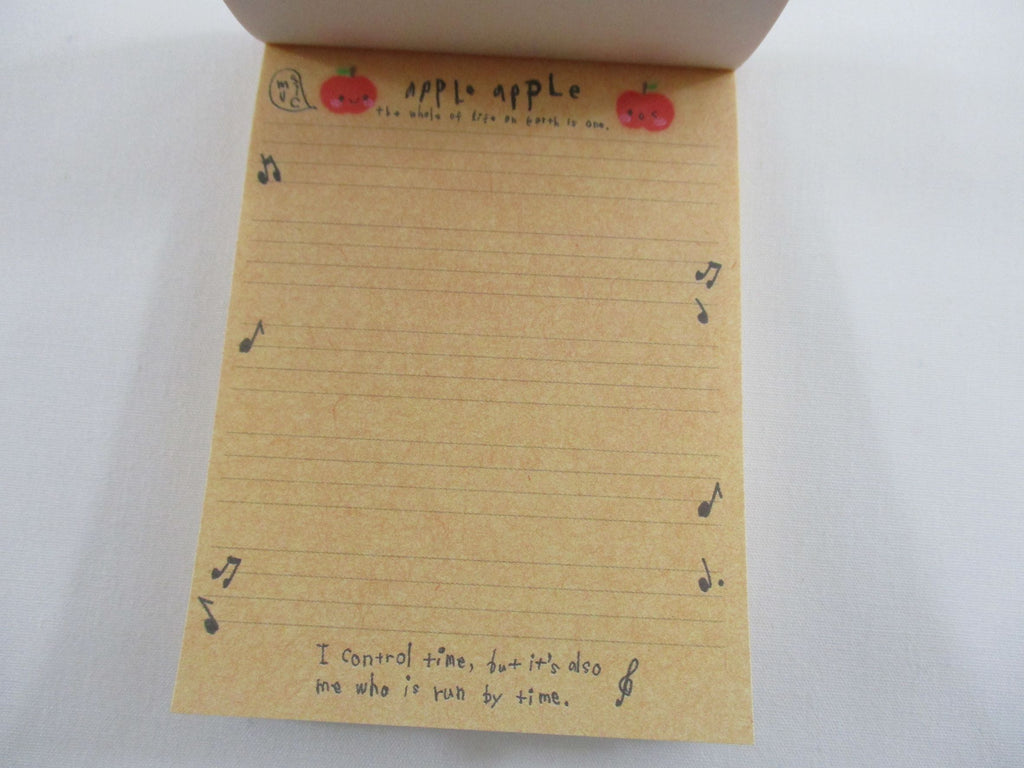 music
apple apple
the whole of life on Earth is one.
I control time, but it's also
me who is run by time.